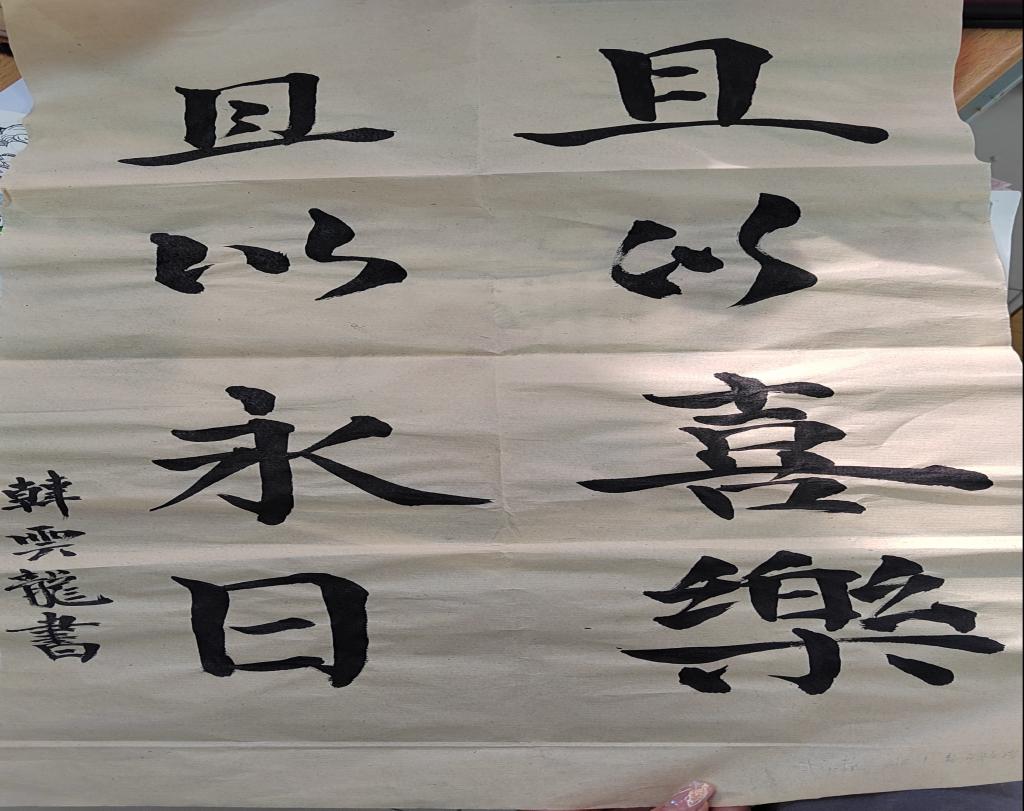 且以喜樂
且以永日
韓雲龍書